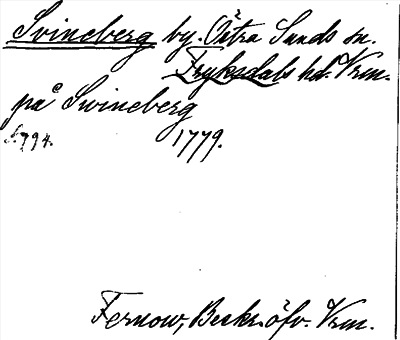 Svineberg by. Östra Sunds sn.
Fryksdals hd. Vrm.
på Swineberg
s. 794. 1779.
Fernow, Beskr. öfv. Vrm.